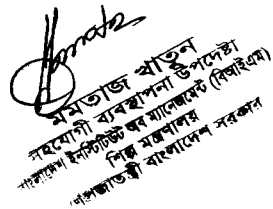 মমতাজ খাতুন
সহযোগী ব্যবস্থাপনা উপদেষ্টা
বাংলাদেশ ইনস্টিটিউট অব ম্যানেজমেন্ট (বিআইএম)
শিল্প মন্ত্রণালয়
গণপ্রজাতন্ত্রী বাংলাদেশ সরকার